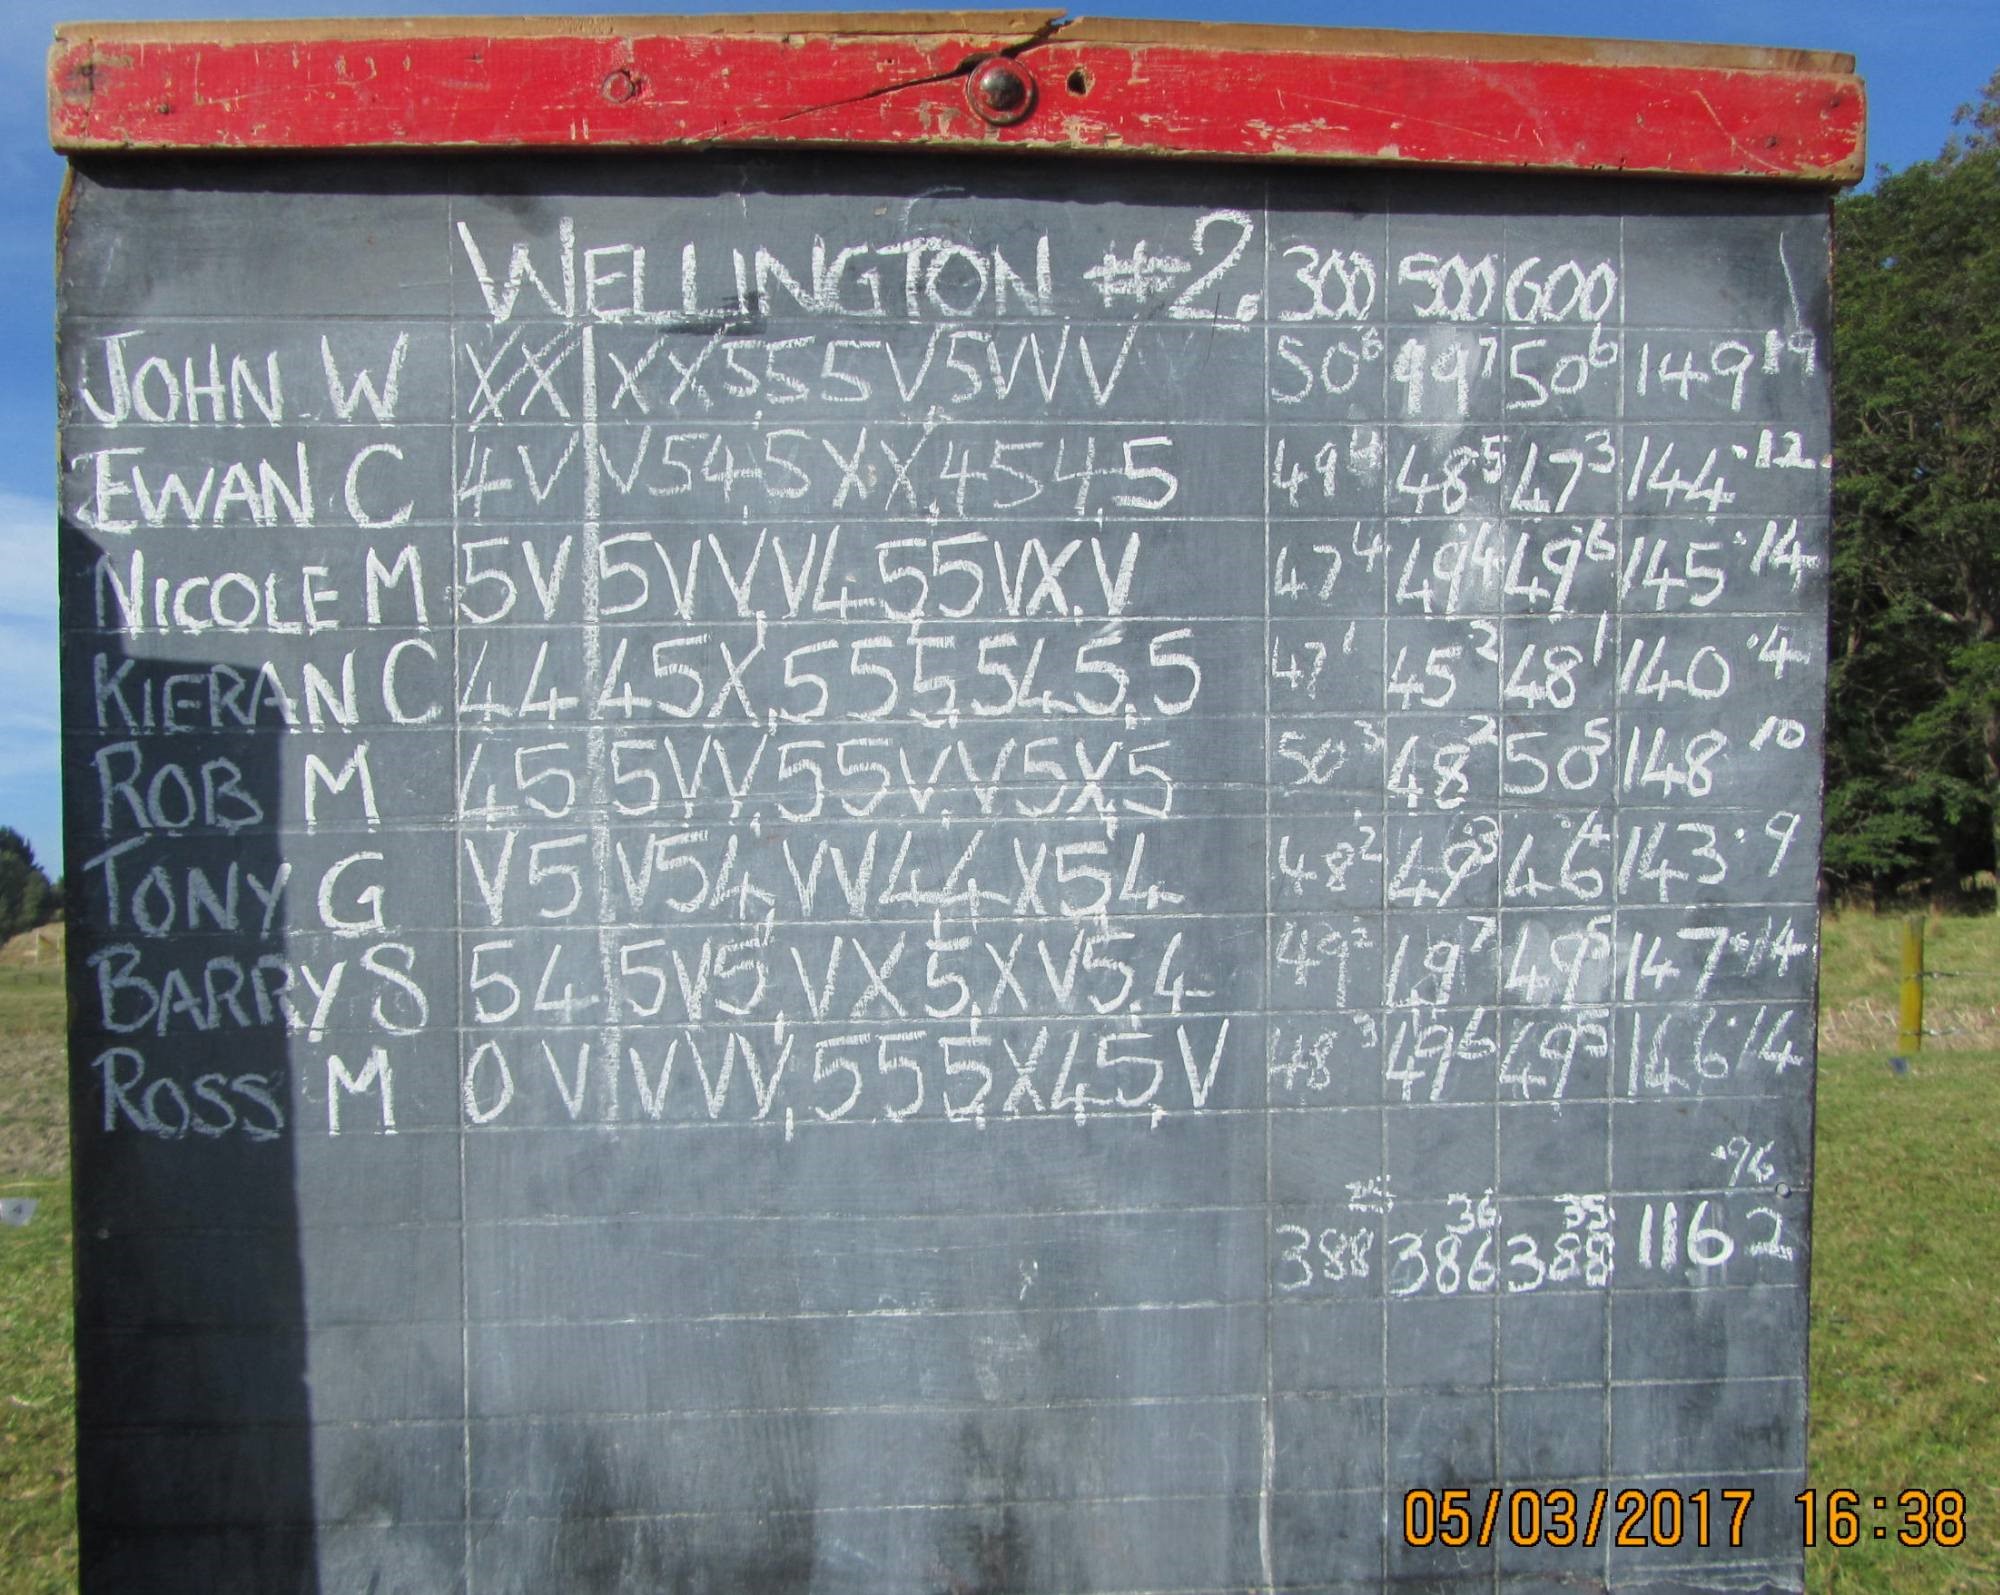 WELLINGTON #2. 300 500 600
JOHN W XX XX555V5VVV 50 6 49 7 50 6 149 19
EWAN C 4V V545XX4545 49 4 48 5 47 3 144 .12
NICOLE M 5V 5VVVV455VXV 47 4 49 4 49 6 145 .14
KIERAN C 44 45X5555545 5 47 1 45 2 48 1 140 .4
ROB M 45 5VV55VV5X5 50 3 48 2 50 5 148 10
TONY G V5 V54VV44X54 48 2 49 3 46 4 143 .9
BARRY S 54 5V5VX5XV54 49 2 49 7 49 5 147 .14
ROSS M 0V VVVV555X45V 48 3 49 6 49 5 146 .14
.96
25 36 35
388 386 388 1162
05/03/2017 16:38